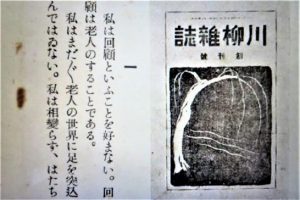 川柳雜誌
創刊號
一
私は回顧といふことを好まない。回
顧は老人のすることである。
私はまだ〱老人の世界に足を突込
んではゐない。私は相變らず、はたち